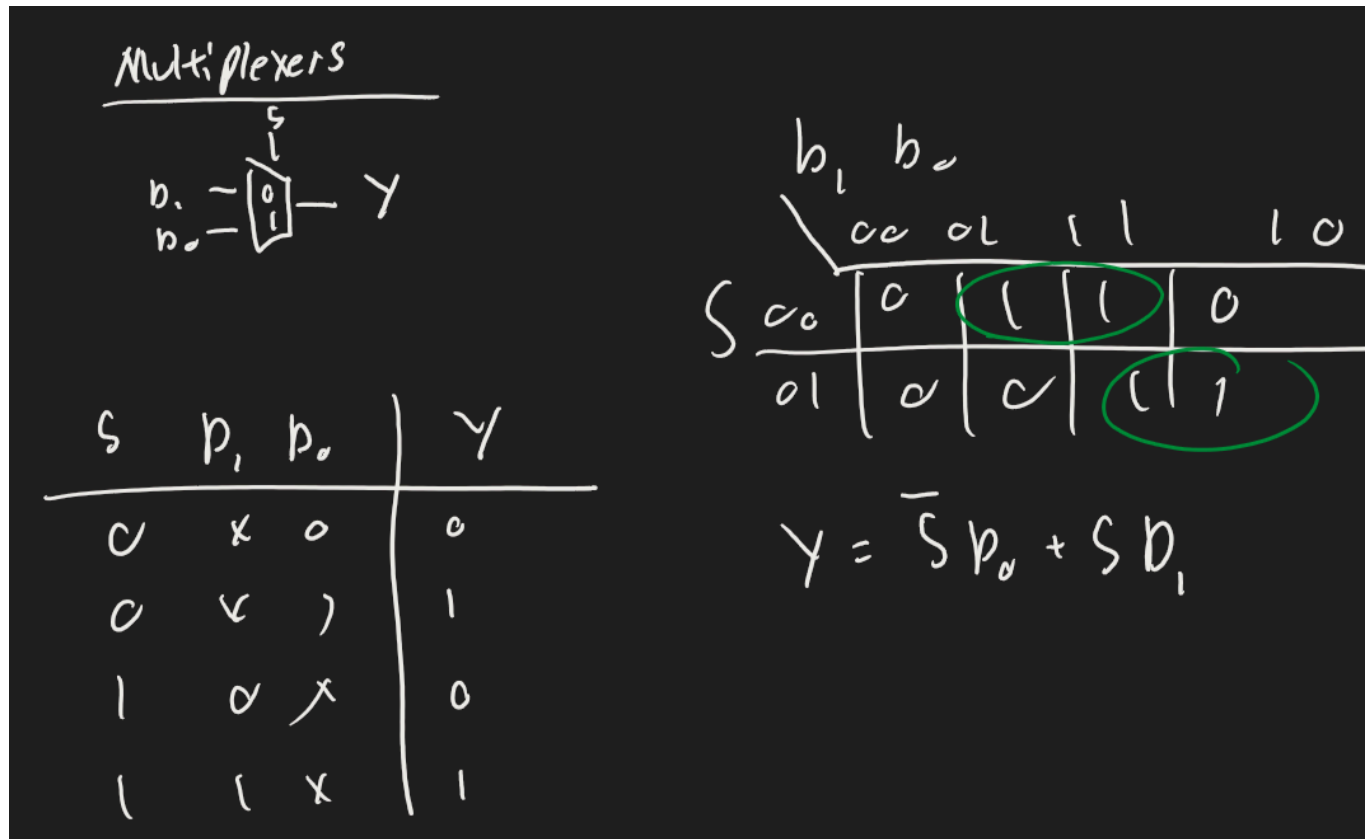 Multiplexers
S
D₁ 0 Y
D₀ 1
S D₁ D₀ Y
0 X 0 0
0 X 1 1
1 0 X 0
1 1 X 1
b₁ b₀
00 01 11 10
S 00 0 1 1 0
01 0 0 1 1
Y = S̅ D₀ + S D₁